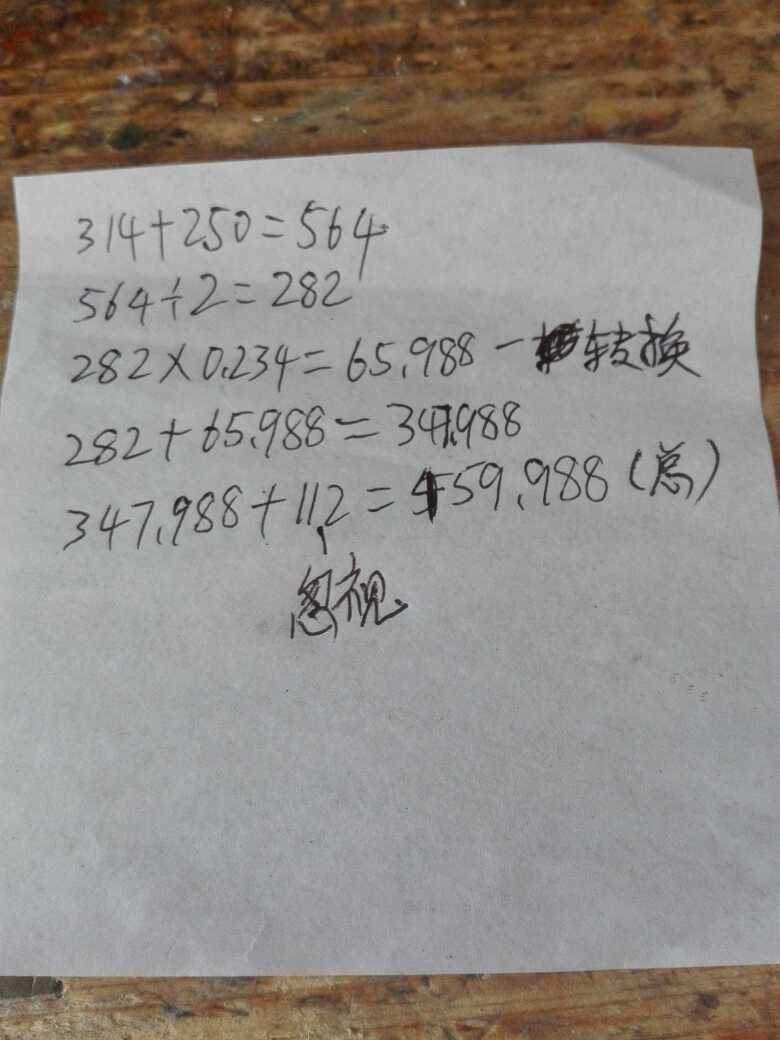 314+250=564
564÷2=282
282×0.234=65.988-转换
282+65.988=347.988
347.988+112=459.988(总)
忽视